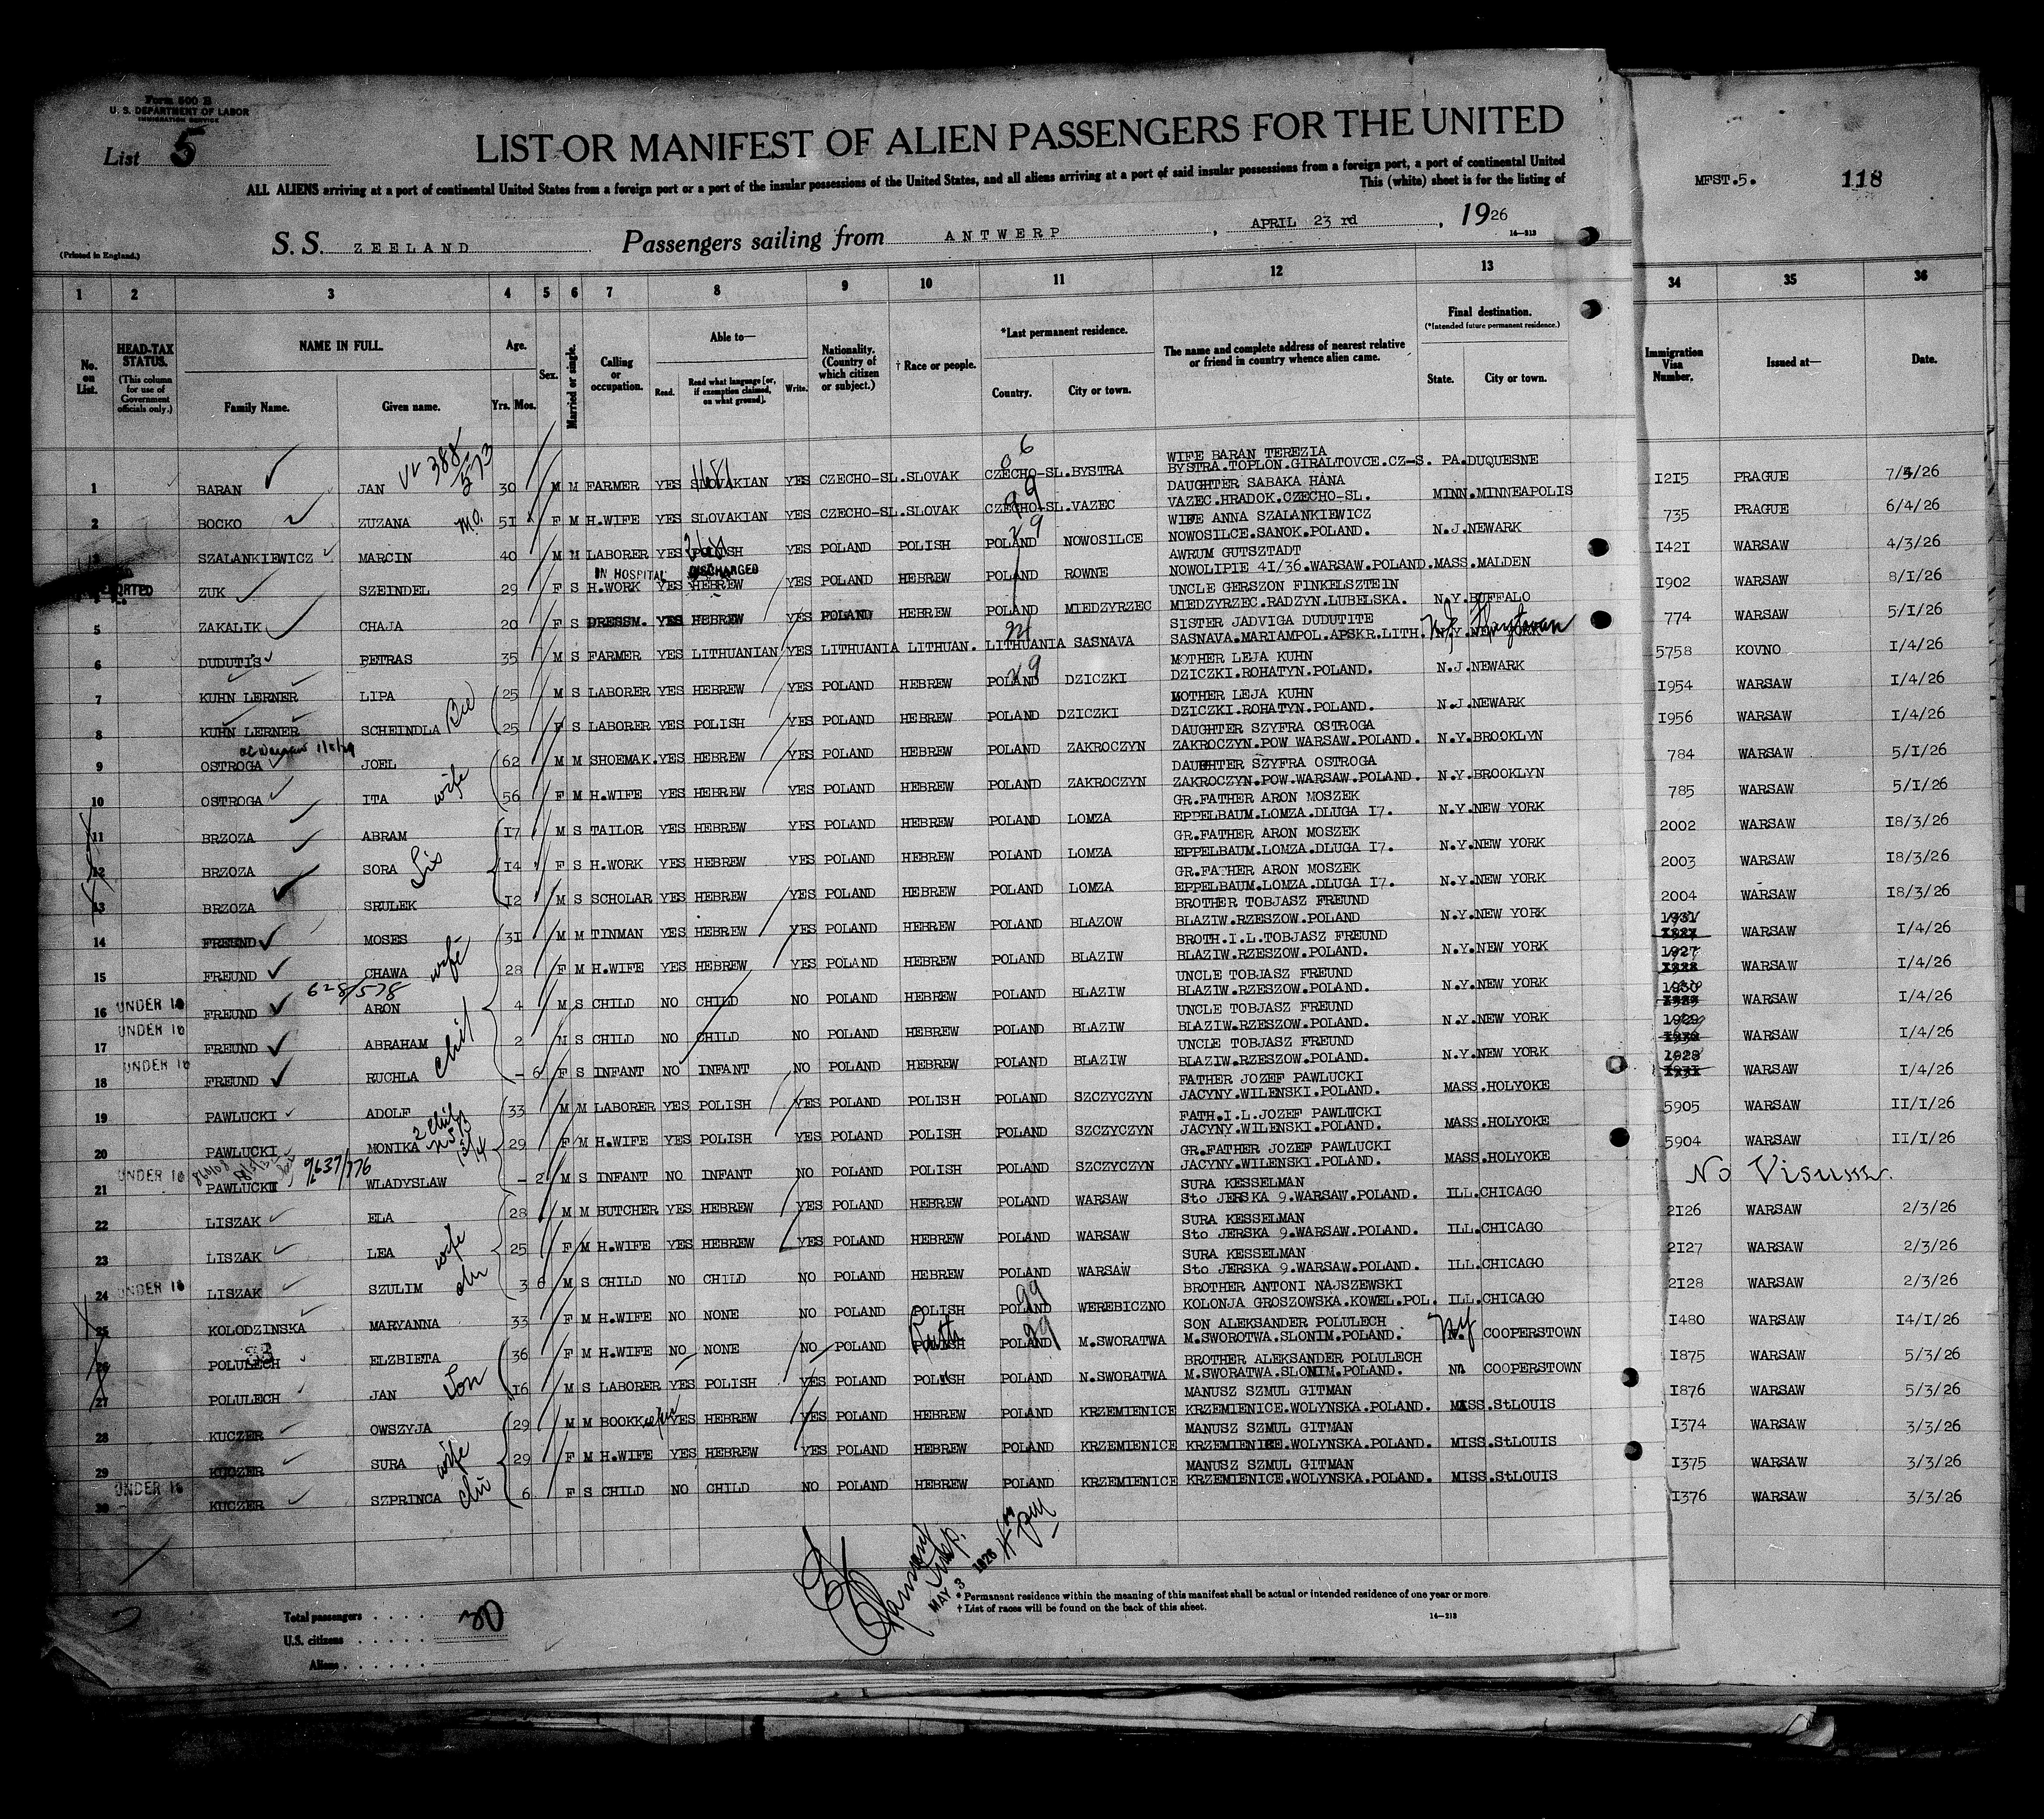 Form 500 B
U. S. DEPARTMENT OF LABOR
IMMIGRATION SERVICE
List 5
LIST OR MANIFEST OF ALIEN PASSENGERS FOR THE UNITED
ALL ALIENS arriving at a port of continental United States from a foreign port or a port of the insular possessions of the United States, and all aliens arriving at a port of said insular possessions from a foreign port, a port of continental United
This (white) sheet is for the listing of
MFST.5. 118
(Printed in England.)
S. S. ZEELAND Passengers sailing from ANTWERP, APRIL 23rd, 1926
14—213
1 2 3 4 5 6 7 8 9 10 11 12 13 34 35 36
No. on List.
HEAD-TAX STATUS.
(This column for use of Government officials only.)
NAME IN FULL.
Family Name. Given name.
Age.
Yrs. Mos.
Sex.
Married or single.
Calling or occupation.
Able to—
Read. Read what language [or, if exemption claimed, on what ground]. Write.
Nationality. (Country of which citizen or subject.)
† Race or people.
*Last permanent residence.
Country. City or town.
The name and complete address of nearest relative or friend in country whence alien came.
Final destination.
(*Intended future permanent residence.)
State. City or town.
Immigration Visa Number.
Issued at—
Date.
WIFE BARAN TEREZIA
1 BARAN JAN 30 M M FARMER YES SLOVAKIAN YES CZECHO-SL. SLOVAK CZECHO-SL. BYSTRA BYSTRA.TOPLON.GIRALTOVCE.CZ-S. PA. DUQUESNE I2I5 PRAGUE 7/4/26
DAUGHTER SABAKA HANA
2 BOCKO ZUZANA 5I F M H.WIFE YES SLOVAKIAN YES CZECHO-SL. SLOVAK CZECHO-SL. VAZEC VAZEC.HRADOK.CZECHO-SL. MINN. MINNEAPOLIS 735 PRAGUE 6/4/26
WIFE ANNA SZALANKIEWICZ
SZALANKIEWICZ MARCIN 40 M M LABORER YES POLISH YES POLAND POLISH POLAND NOWOSILCE NOWOSILCE.SANOK.POLAND. N.J. NEWARK I42I WARSAW 4/3/26
IN HOSPITAL DISCHARGED
AWRUM GUTSZTADT
ZUK SZEINDEL 29 F S H.WORK YES HEBREW YES POLAND HEBREW POLAND ROWNE NOWOLIPIE 4I/36.WARSAW.POLAND. MASS. MALDEN I902 WARSAW 8/I/26
UNCLE GERSZON FINKELSZTEIN
5 ZAKALIK CHAJA 20 F S DRESSM. YES HEBREW YES POLAND HEBREW POLAND MIEDZYRZEC MIEDZYRZEC.RADZYN.LUBELSKA. N.Y. BUFFALO 774 WARSAW 5/I/26
SISTER JADVIGA DUDUTITE
6 DUDUTIS PETRAS 35 M S FARMER YES LITHUANIAN YES LITHUANIA LITHUAN. LITHUANIA SASNAVA SASNAVA.MARIAMPOL.APSKR.LITH. N.Y. NEW YORK 5758 KOVNO I/4/26
MOTHER LEJA KUHN
7 KUHN LERNER LIPA 25 M S LABORER YES HEBREW YES POLAND HEBREW POLAND DZICZKI DZICZKI.ROHATYN.POLAND. N.J. NEWARK I954 WARSAW I/4/26
MOTHER LEJA KUHN
8 KUHN LERNER SCHEINDLA 25 F S LABORER YES POLISH YES POLAND HEBREW POLAND DZICZKI DZICZKI.ROHATYN.POLAND. N.J. NEWARK I956 WARSAW I/4/26
DAUGHTER SZYFRA OSTROGA
9 OSTROGA JOEL 62 M M SHOEMAK. YES HEBREW YES POLAND HEBREW POLAND ZAKROCZYN ZAKROCZYN.POW WARSAW.POLAND. N.Y. BROOKLYN 784 WARSAW 5/I/26
DAUGHTER SZYFRA OSTROGA
10 OSTROGA ITA wife 56 F M H.WIFE YES HEBREW YES POLAND HEBREW POLAND ZAKROCZYN ZAKROCZYN.POW.WARSAW.POLAND. N.Y. BROOKLYN 785 WARSAW 5/I/26
GR.FATHER ARON MOSZEK
11 BRZOZA ABRAM I7 M S TAILOR YES HEBREW YES POLAND HEBREW POLAND LOMZA EPPELBAUM.LOMZA.DLUGA I7. N.Y. NEW YORK 2002 WARSAW I8/3/26
GR.FATHER ARON MOSZEK
12 BRZOZA SORA Sis I4 F S H.WORK YES HEBREW YES POLAND HEBREW POLAND LOMZA EPPELBAUM.LOMZA.DLUGA I7. N.Y. NEW YORK 2003 WARSAW I8/3/26
GR.FATHER ARON MOSZEK
13 BRZOZA SRULEK I2 M S SCHOLAR YES HEBREW YES POLAND HEBREW POLAND LOMZA EPPELBAUM.LOMZA.DLUGA I7. N.Y. NEW YORK 2004 WARSAW I8/3/26
BROTHER TOBJASZ FREUND
14 FREUND MOSES 3I M M TINMAN YES HEBREW YES POLAND HEBREW POLAND BLAZOW BLAZIW.RZESZOW.POLAND N.Y. NEW YORK 1931 WARSAW I/4/26
BROTH.I.L.TOBJASZ FREUND
15 FREUND CHAWA wife 28 F M H.WIFE YES HEBREW YES POLAND HEBREW POLAND BLAZIW BLAZIW.RZESZOW.POLAND. N.Y. NEW YORK 1927 WARSAW I/4/26
628/578
UNCLE TOBJASZ FREUND
16 UNDER 16 FREUND ARON 4 M S CHILD NO CHILD NO POLAND HEBREW POLAND BLAZIW BLAZIW.RZESZOW.POLAND. N.Y. NEW YORK 1930 WARSAW I/4/26
UNCLE TOBJASZ FREUND
17 UNDER 16 FREUND ABRAHAM 2 M S CHILD NO CHILD NO POLAND HEBREW POLAND BLAZIW BLAZIW.RZESZOW.POLAND. N.Y. NEW YORK 1929 WARSAW I/4/26
UNCLE TOBJASZ FREUND
18 UNDER 16 FREUND RUCHLA - 6 F S INFANT NO INFANT NO POLAND HEBREW POLAND BLAZIW BLAZIW.RZESZOW.POLAND. N.Y. NEW YORK 1928 WARSAW I/4/26
FATHER JOZEF PAWLUCKI
19 PAWLUCKI ADOLF 33 M M LABORER YES POLISH YES POLAND POLISH POLAND SZCZYCZYN JACYNY.WILENSKI.POLAND. MASS. HOLYOKE 5905 WARSAW II/I/26
FATH.I.L.JOZEF PAWLUCKI
20 PAWLUCKI MONIKA 29 F M H.WIFE YES POLISH YES POLAND POLISH POLAND SZCZYCZYN JACYNY.WILENSKI.POLAND. MASS. HOLYOKE 5904 WARSAW II/I/26
GR.FATHER JOZEF PAWLUCKI
21 UNDER 16 PAWLUCKI WLADYSLAW - 2 M S INFANT NO INFANT NO POLAND POLISH POLAND SZCZYCZYN JACYNY.WILENSKI.POLAND. MASS. HOLYOKE No Visum.
SURA KESSELMAN
22 LISZAK ELA 28 M M BUTCHER YES HEBREW YES POLAND HEBREW POLAND WARSAW Sto JERSKA 9.WARSAW.POLAND. ILL. CHICAGO 2I26 WARSAW 2/3/26
SURA KESSELMAN
23 LISZAK LEA wife 25 F M H.WIFE YES HEBREW YES POLAND HEBREW POLAND WARSAW Sto JERSKA 9.WARSAW.POLAND. ILL. CHICAGO 2I27 WARSAW 2/3/26
SURA KESSELMAN
24 UNDER 16 LISZAK SZULIM 3 6 M S CHILD NO CHILD NO POLAND HEBREW POLAND WARSAW Sto JERSKA 9.WARSAW.POLAND. ILL. CHICAGO 2I28 WARSAW 2/3/26
BROTHER ANTONI NAJSZEWSKI
25 KOLODZINSKA MARYANNA 33 F M H.WIFE NO NONE NO POLAND POLISH POLAND WEREBICZNO KOLONJA GROSZOWSKA.KOWEL.POL. ILL. CHICAGO I480 WARSAW I4/I/26
SON ALEKSANDER POLULECH
26 POLULECH ELZBIETA 36 F M H.WIFE NO NONE NO POLAND POLISH POLAND M.SWORATWA M.SWOROTWA.SLONIM.POLAND. NY COOPERSTOWN I875 WARSAW 5/3/26
BROTHER ALEKSANDER POLULECH
27 POLULECH JAN Son I6 M S LABORER YES POLISH YES POLAND POLISH POLAND N.SWORATWA M.SWORATWA.SLONIM.POLAND. COOPERSTOWN I876 WARSAW 5/3/26
MANUSZ SZMUL GITMAN
28 KUCZER OWSZYJA 29 M M BOOKKeeper YES HEBREW YES POLAND HEBREW POLAND KRZEMIENICE KRZEMIENICE.WOLYNSKA.POLAND. MISS. StLOUIS I374 WARSAW 3/3/26
MANUSZ SZMUL GITMAN
29 KUCZER SURA wife 29 F M H.WIFE YES HEBREW YES POLAND HEBREW POLAND KRZEMIENICE KRZEMIENICE.WOLYNSKA.POLAND. MISS. StLOUIS I375 WARSAW 3/3/26
MANUSZ SZMUL GITMAN
30 UNDER 16 KUCZER SZPRINCA 6 F S CHILD NO CHILD NO POLAND HEBREW POLAND KRZEMIENICE KRZEMIENICE.WOLYNSKA.POLAND. MISS. StLOUIS I376 WARSAW 3/3/26
MAY 3 1926
* Permanent residence within the meaning of this manifest shall be actual or intended residence of one year or more.
† List of races will be found on the back of this sheet.
14—213
Total passengers 30
U.S. citizens
Aliens